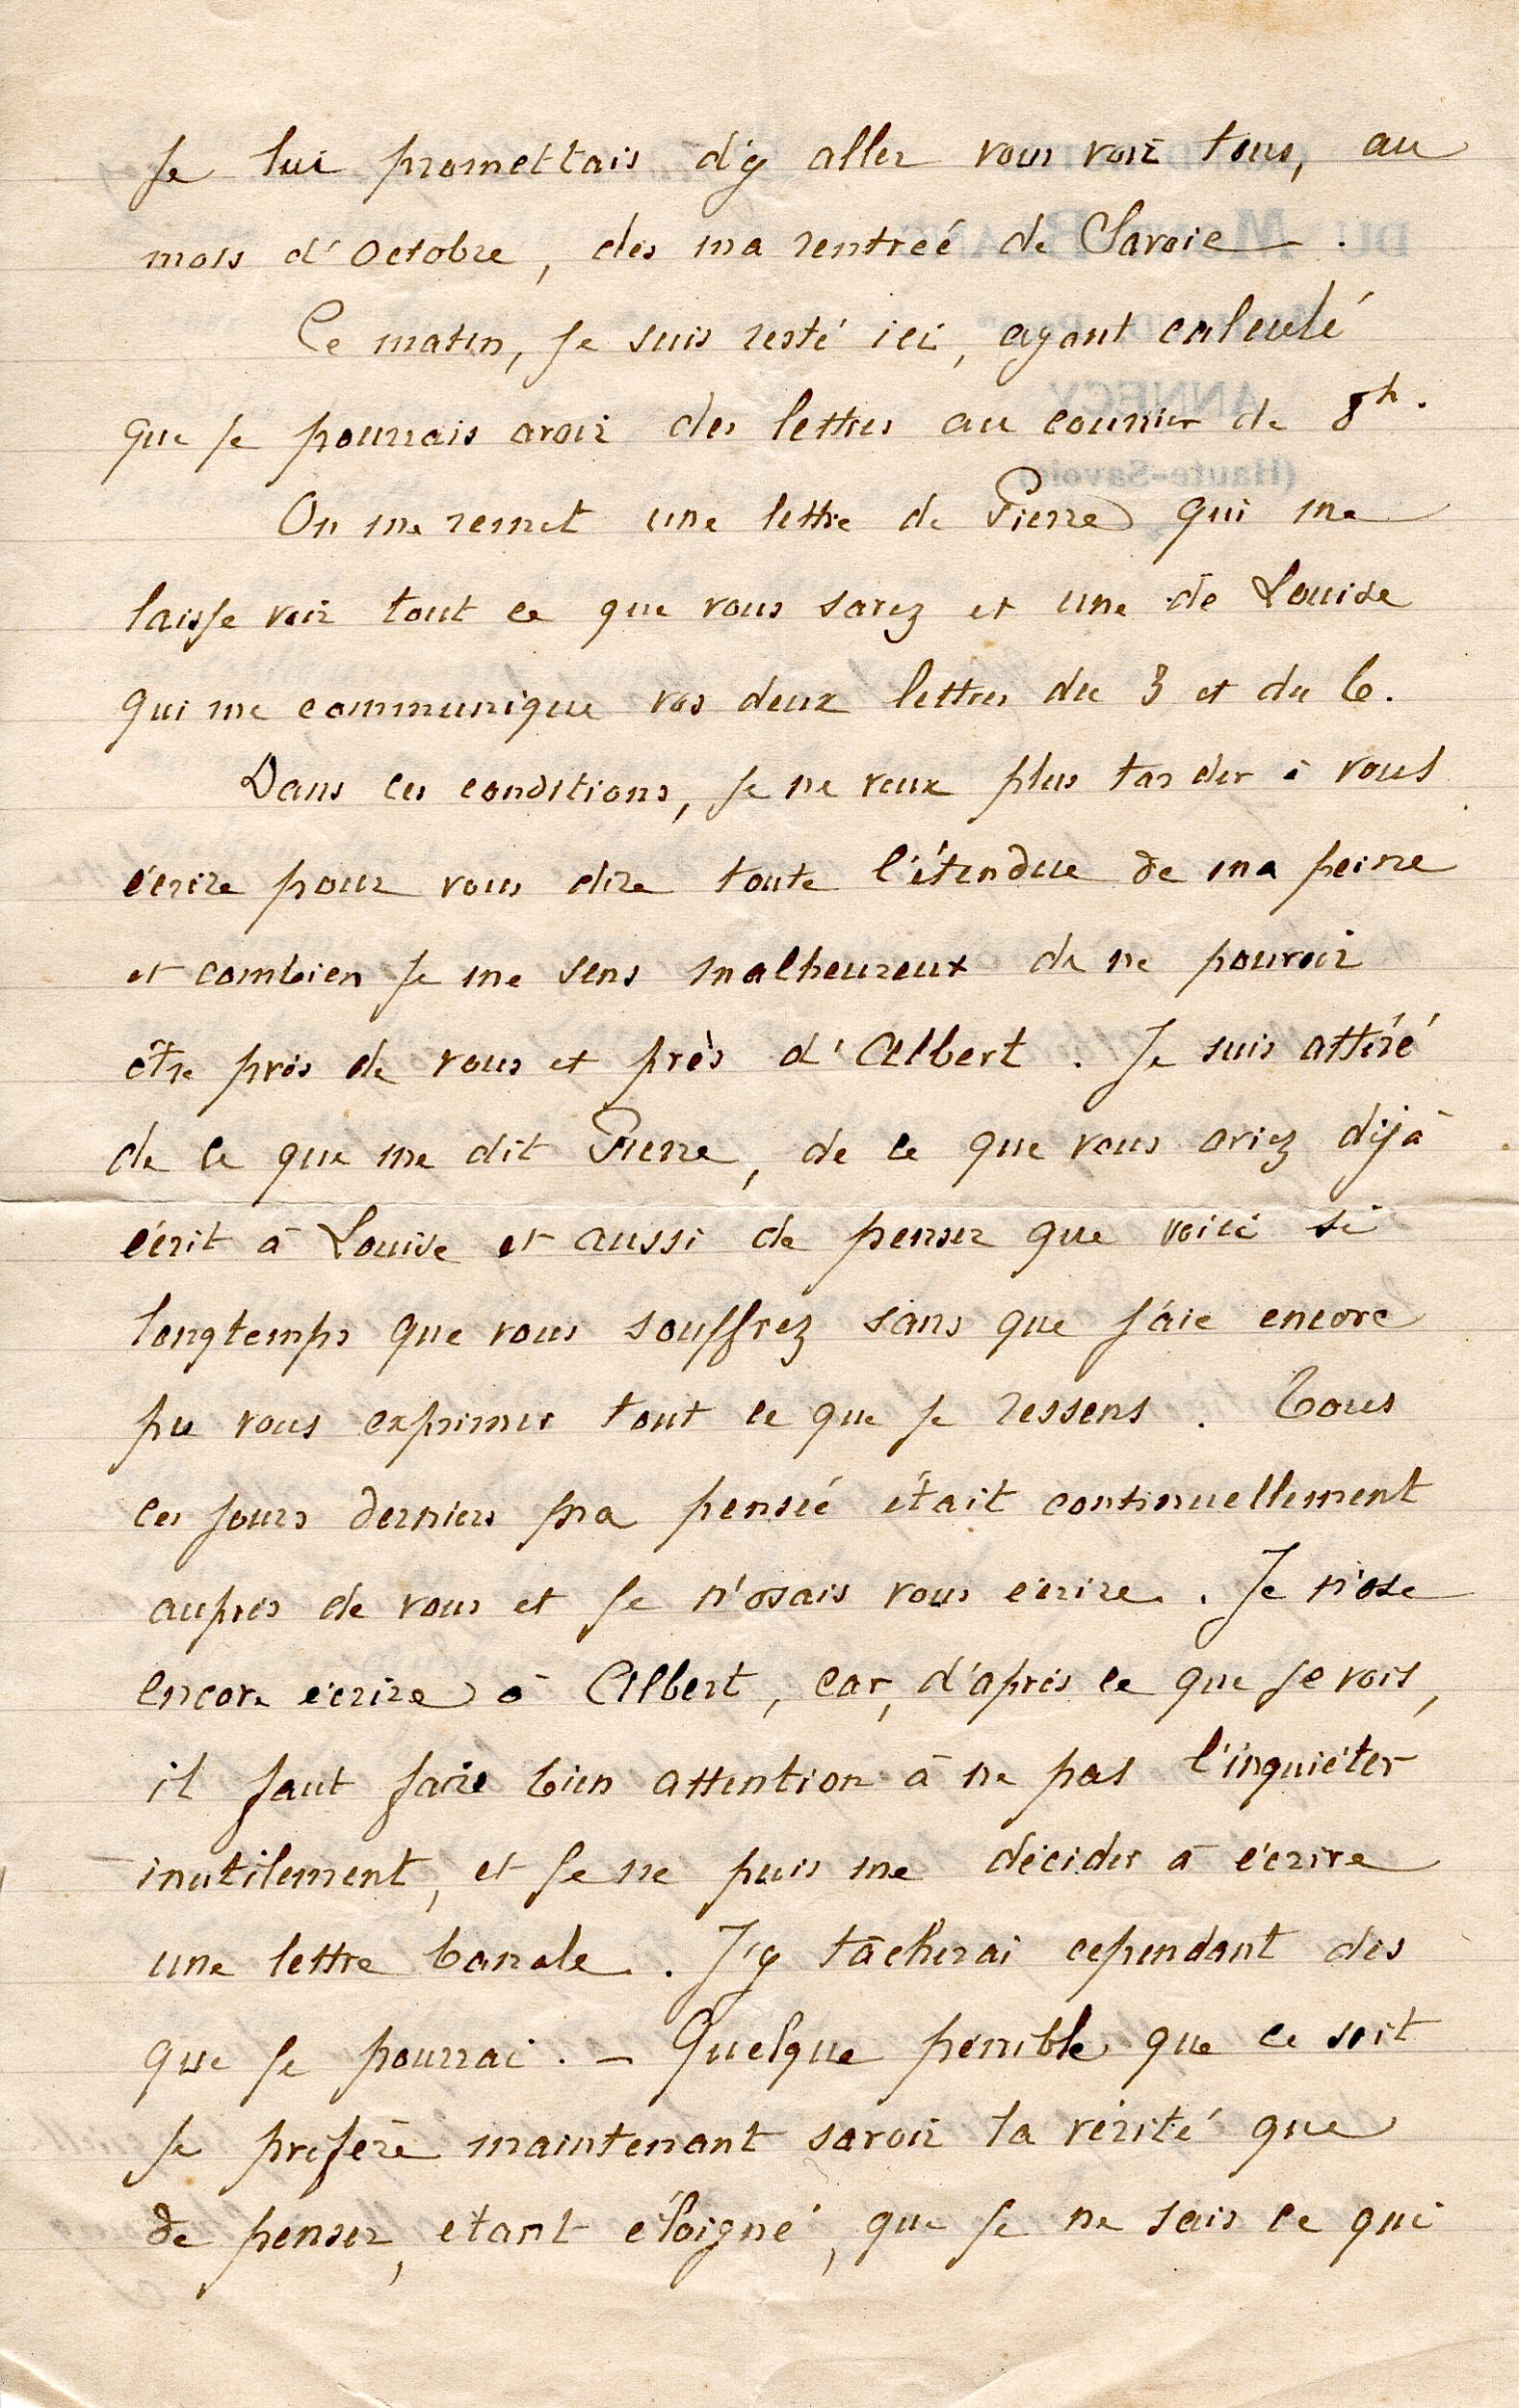 Je lui promettais d'y aller vous voir tous, au
mois d'Octobre, dès ma rentreé de Savoie — .
Ce matin, je suis resté ici, ayant calculé
que je pourrais avoir des lettres au courrier de 8h.
On me remet une lettre de Pierre qui me
laisse voir tout ce que vous savez et une de Louise
qui me communique vos deux lettres du 3 et du 6.
Dans ces conditions, je ne veux plus tarder à vous
écrire pour vous dire toute l'étendue de ma peine
et combien je me sens malheureux de ne pouvoir
être près de vous et près d'Albert. Je suis attéré
de ce que me dit Pierre, de ce que vous aviez déjà
écrit à Louise et aussi de penser que voici si
longtemps que vous souffrez sans que j'aie encore
pu vous exprimer tout ce que je ressens. Tous
ces jours derniers ma pensée était continuellement
auprès de vous et je n'osais vous écrire. Je n'ose
encore écrire à Albert, car, d'après ce que je vois,
il faut faire bien attention à ne pas l'inquiéter
inutilement, et je ne puis me décider à écrire
une lettre banale. J'y tâcherai cependant dès
que je pourrai. — Quelque pénible que ce soit
je préfère maintenant savoir la vérité que
de penser, étant éloigné, que je ne sais ce qui
DU MONT BLANC
ANNECY
(Haute-Savoie)